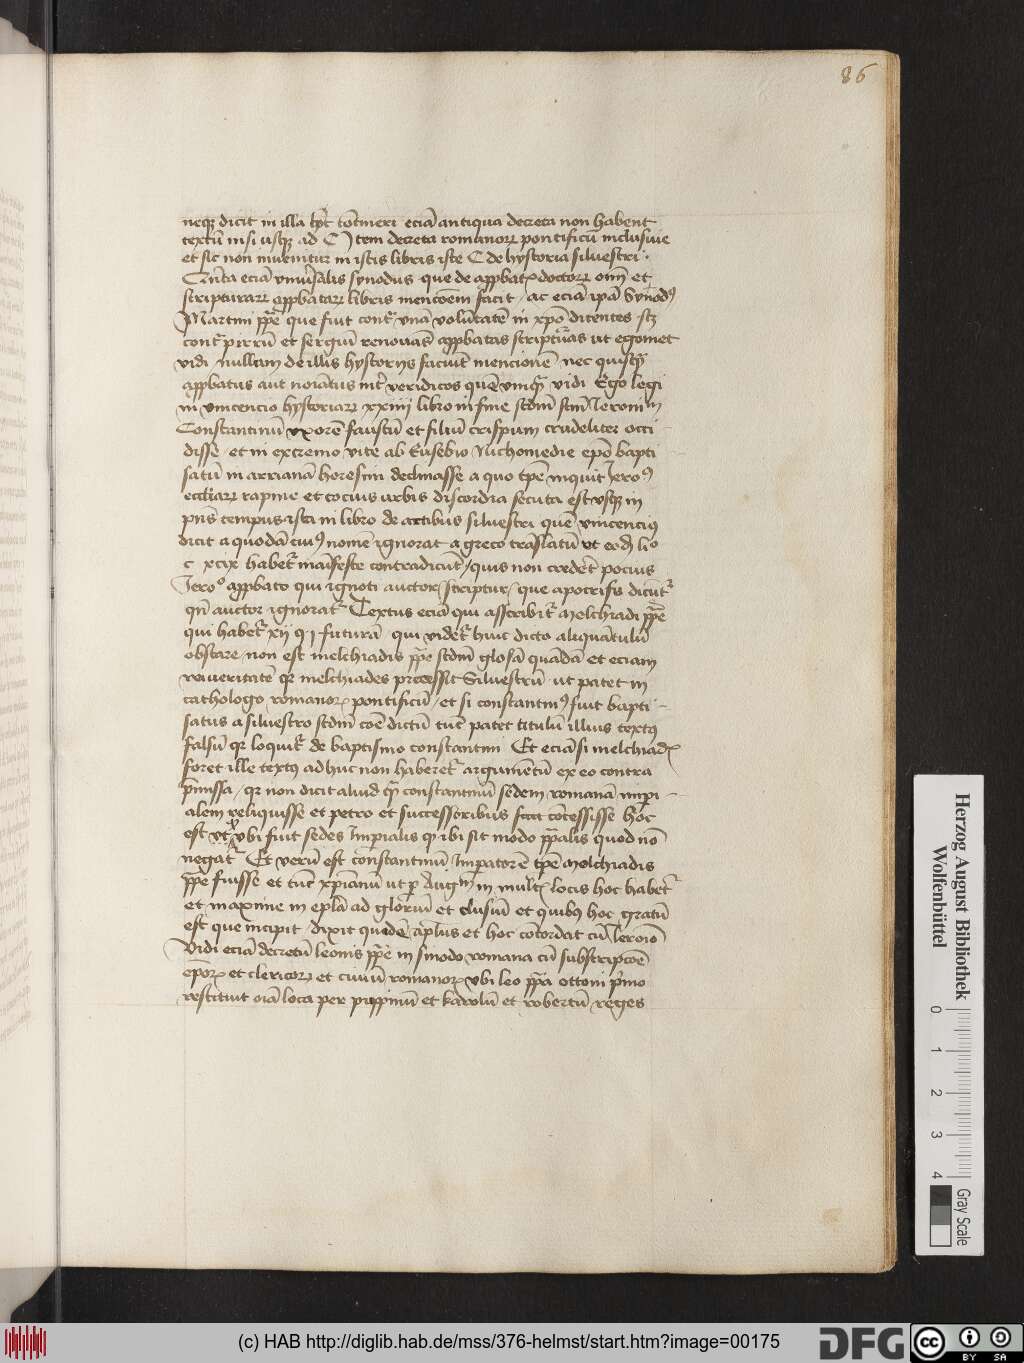 86
neqz dicit in illa hystoria contineri eciā antiqua decreta non habent
textū nisi usqz ad C Item decreta romanorz pontificū inclusiue
et sic non inuenitur in istis libris iste C de hystoria siluestri .
Quīta eciā vniūsalis synodus que de appbatz doctorz om̄ et
scripturarz appbatarz libris mencōem facit / ac eciā ipā Synod9
Martini ppe que fuit contra vnā volūtatē in xpō dicentes scz
contra pirrū et sergiū renouāt appbatas scripturas ut egomet
vidi nullam de illis hystoriis faciūt mencionē nec quisqz
appbatus aut noiatus int veridicos quē vnqz vidi Ego legi
in vincencio hystoriarz xxiiij libro in fine scdm scm Ieronim
Constantinū vxorē faustū et filiū crispum crudeliter occi
disse et in extremo vite ab Eusebio Nichomedie epō bapti
satū in arrianā heresim declinasse a quo tpe inquit Iero9
eccliarz rapine et tocius urbis discordia secuta est vsqz in
pn̄s tempus ista in libro de actibus siluestri quē vincenci9
dicit a quodā cui9 nomē ignorat a greco trāslatū vt eodē lio
c xcix habetr maīfeste contradicūt / quis non crederet pocius
Iero° appbato qui ignoti auctor scriptur / que apocrifis dicūtr
qn̄ auctor ignoratr Textus eciā qui asscribitr Melchiadi ppe
qui habetr xij q j futurā qui videtr huic dicto aliquātulū
obstare / non est melchiadis ppe scdm glosā quādā et eciam
rei veritatē qr melchiades precessit Siluestrū ut patet in
cathologo romanorz pontificū / et si constantin9 fuit bapti
satus a siluestro scdm coē dictū tūc patet titulū illius text9
falsū qr loquitr de baptismo constantini Et eciā si melchiadz
foret ille text9 adhuc non haberetr argumētū ex eo contra
pmissa / qr non dicit aliud qz constantinū sedem romanā impi
alem reliquisse et petro et successoribus suis cōcessisse hoc
est vt vbi fuit sedes Imperialis qz ibi sit modo ppalis quod nō
negatr Et verū est constantinū Imperatorē tpe Melchiadis
ppe fuisse et tūc xpianū ut p Augm in multz locis hoc habetr
et maxime in eplā ad gloriū et elusiū et quib9 hoc gratū
est que incipit dixit quidē apl̄us et hoc cōcordat cū Ieroiō
Vidi eciā decretū leonis ppe in sinodo romana cū subscripcōe
eporz et clericorz et ciuiū romanorz vbi leo ppa ottoni pmo
restituit oīā loca per pippinū et karolū et robertū reges
Herzog August Bibliothek
Wolfenbüttel
0 1 2 3 4
Gray Scale
(c) HAB http://diglib.hab.de/mss/376-helmst/start.htm?image=00175
DFG
cc BY SA